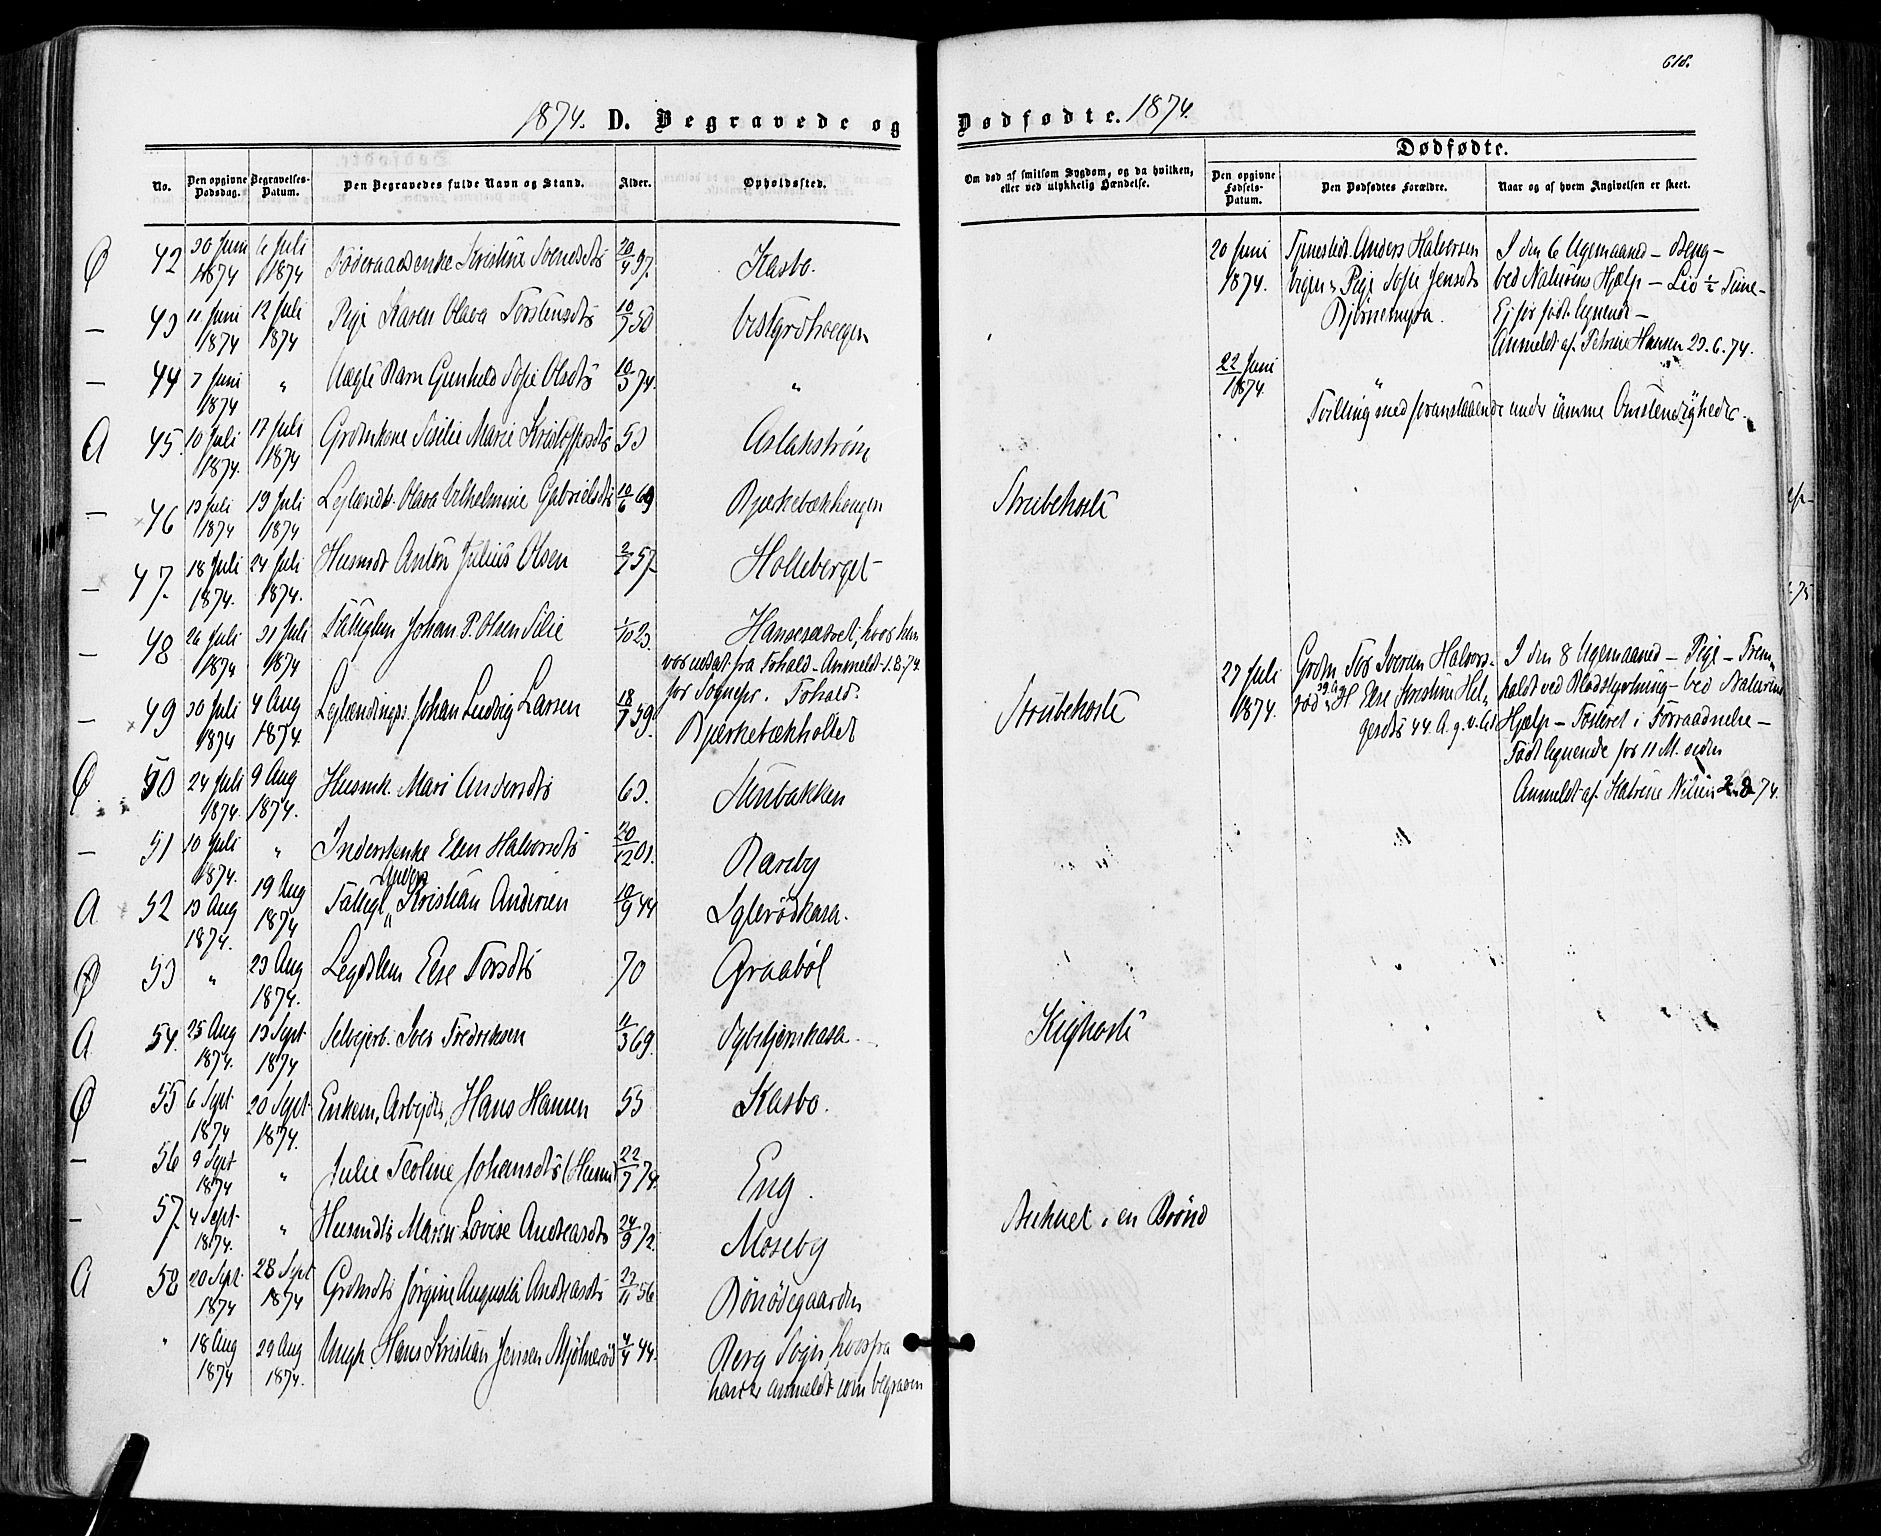 618.
1874. D. Begravede og Dødfødte. 1874.
Dødfødte.
No. Den opgivne Dødsdag. Begravelses-Datum. Den Begravedes fulde Navn og Stand. Alder. Opholdssted.
Om død af smitsom Sygdom, og da hvilken, eller ved ulykkelig Hændelse. Den opgivne Fødsels-Datum. Den Dødfødtes Forældre. Naar og af hvem Angivelsen er skeet.
Ø 42 30 Juni 1874 6 Juli 1874 Føderaadsenke Kristine Svendsdtr 20/4 97. Kasbo.
— 43 11 Juni 1874 12 Juli 1874 Pige Karen Olava Torstensdtr 10/7 58 Vestgrdhaugen
— 44 7 Juni 1874 " Uægte Barn Gunhild Sofie Olsdtr 10/3 74. "
A 45. 10 Juli 1874. 17 Juli 1874 Grdmkone Sisilie Marie Kristoffersdtr 53 Aslakstrøm
— 46 13 Juli 1874 19 Juli 1874 Leylændt. Olava Vilhelmine Gabrielsdtr 10/6 69 Bjerkebækhaugen Strubehoste
— 47. 18 Juli 1874. 24 Juli 1874. Husmd Anton Julius Olsen 2/7 57. Holleberget
— 48 26 Juli 1874 31 Juli 1874 Fattiglem Johan P. Olsen Silie 1/10 23. Hansesætret, hvor han
var udsat fra Tohald. Anmeldt 1.8.74.
for Sognepr. i Tohald.
— 49 30 Juli 1874 4 Aug 1874 Leylændings. Johan Ludvig Larsen 18/7 59. Bjerkebækholtet Strubehoste
Ø 50 24 Juli 1874. 9 Aug 1874. Husmk. Mari Andersdtr 63. Stenbakken
— 51 10 Juli 1874. " Inderstenke Elen Halvorsdtr 20/12 01. Barsby
Anders
A 52 13 Aug 1874. 19 Aug 1874 Fattigl. " Kristian Andersen 10/9 44 Iglerødkasa.
Ø 53 " 23 Aug 1874. Legdslem Else Torsdtr 70 Graabøl
A 54. 25 Aug 1874. 13 Sept 1874 Selvejerb. Iver Fredriksen 11/3 69. Kighoste
Ø 55 6 Sept 1874 20 Sept 1874. Enkem, Arbejdr, Hans Hansen 55 Kasbo.
— 56 9 Sept 1874 " Julie Teoline Johansdtr (Husm) 22/7 74. Eng.
— 57. 4 Sept 1874. " Husmdtr Maren Lovise Andreasdtr 24/3 72. Moseby Druknet i en Brønd
A 58 20 Sept 1874 28 Sept 1874 Grdmdtr Jørgine Augusta Andreasdtr 27/11 56 Bønødegaarden
" 18 Aug 1874 29 Aug 1874. Ungk. Hans Kristian Jensen Mjølnerød 4/4 44. Berg Sogn, hvorfra
han er anmeldt som begraven
20 Juni 1874. Tjenestkd. Anders Halvorsen
Vigen & Pige Sofie Jensdtr
Bjørnemyra.
I den 6 Ugemaaned — Dreng —
ved Naturens Hjælp — Liv ½ Time —
Ej før født lignende —
Anmeldt af Petrine Hansen 23.6.74.
22 Juni 1874. "
Tvilling med foranstaaende under samme Omstændigheder.
27 Juli 1874. Grdm Tor Iversen Halvors-
rød 39 A & H Else Kristine Hel-
gesdtr 44 A. g. v. lid
I den 8 Ugemaaned — Pige — Frem-
kaldt ved Blodstyrtning — ved Naturens
Hjælp — Fosteret i Forraadnelse —
Født lignende for 11 M. siden
Anmeldt af Katrine Nilsen 74.